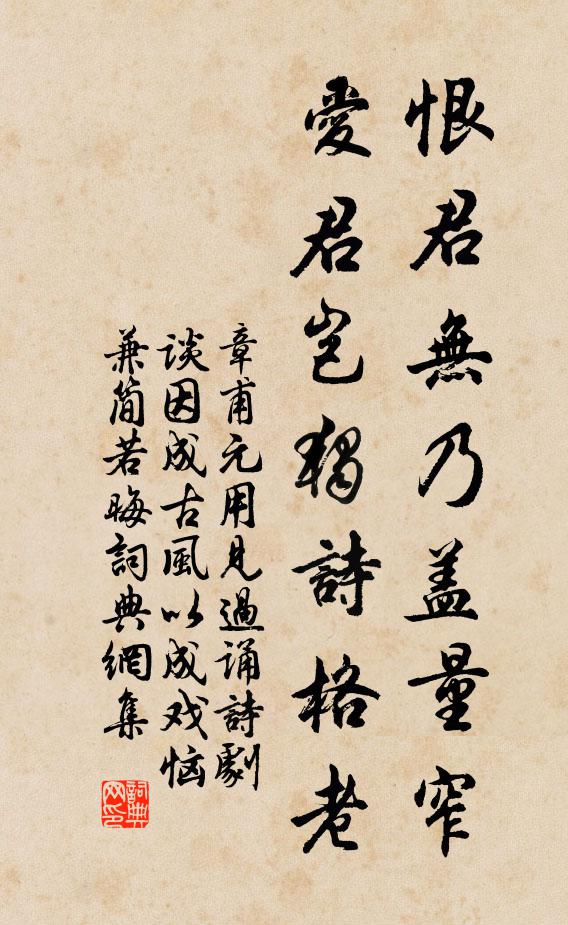 恨君無乃盖量窄
愛君豈獨詩格老
章甫元用見過誦詩劇
談因成古風以成戏恼
兼简若晦詞典網集
詞典网印